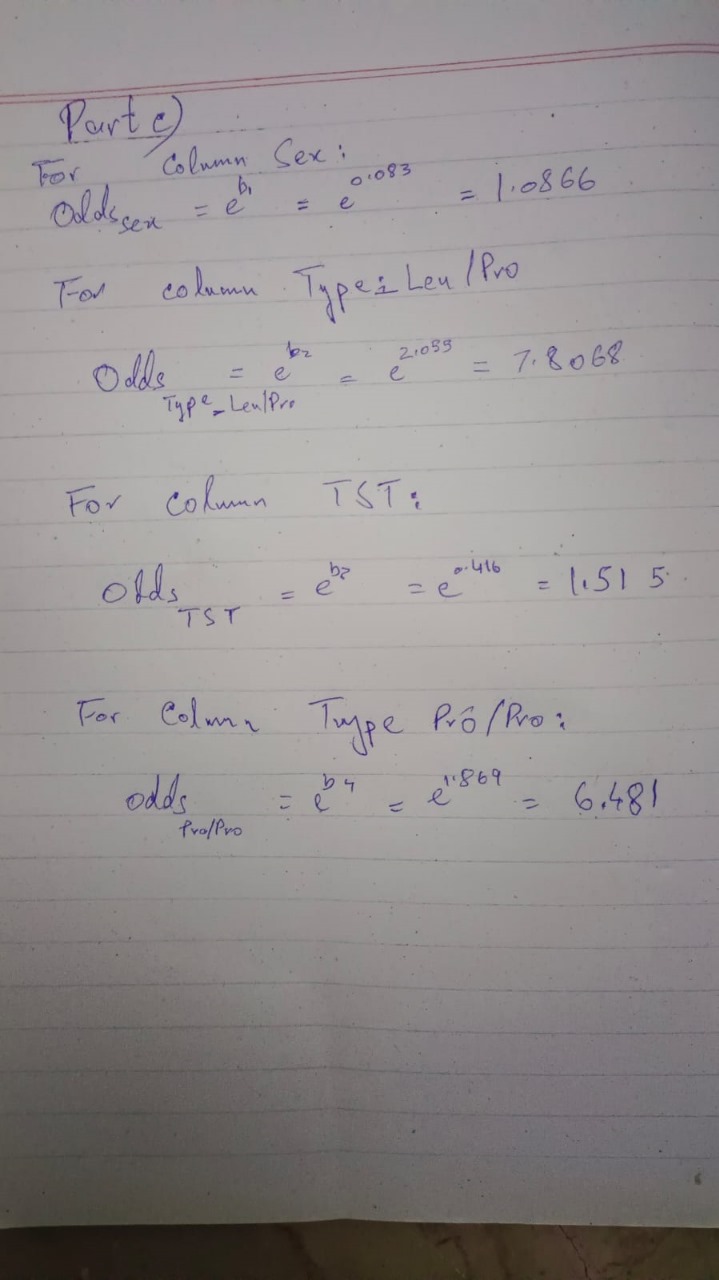 Part c)
For Column Sex:
Odds sex = e^b1 = e^0.083 = 1.0866
For column Type: Leu/Pro
Odds Type_Leu/Pro = e^b2 = e^2.055 = 7.8068
For Column TST:
Odds TST = e^b3 = e^0.416 = 1.515
For Column Type Pro/Pro:
odds Pro/Pro = e^b4 = e^1.869 = 6.481